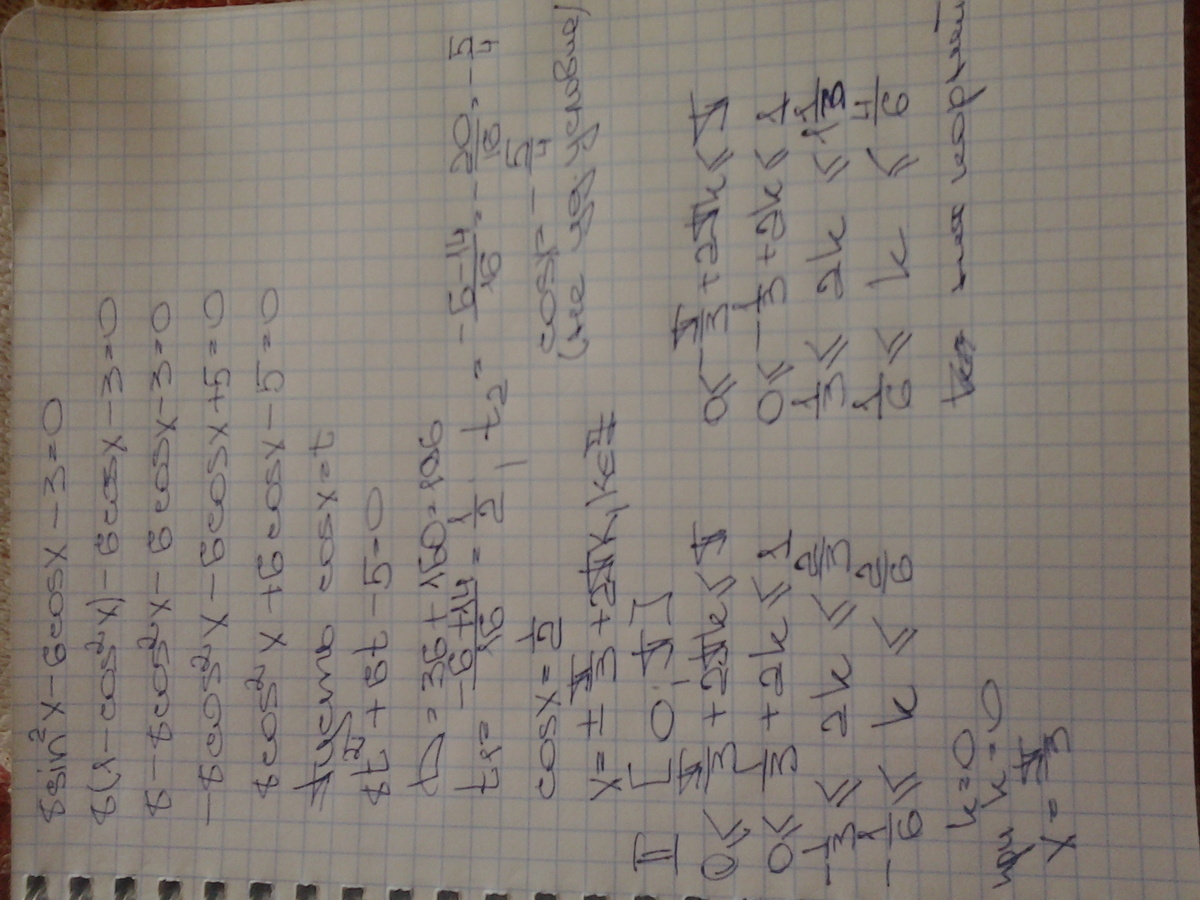 8sin²x-6cosx-3=0
8(1-cos²x)-6cosx-3=0
8-8cos²x-6cosx-3=0
-8cos²x-6cosx+5=0
8cos²x+6cosx-5=0
Пусть cosx=t
8t²+6t-5=0
D=36+160=196
t₁= (-6+14)/16 = 1/2, t₂= (-6-14)/16 = -20/16 = -5/4
cosx=1/2
cosx=-5/4
(не уд. условие)
x=±π/3+2πk, k∈Z
II [0; π]
0≤π/3+2πk≤π
0≤1/3+2k≤1
-1/3≤2k≤2/3
-1/6≤k≤2/6
k=0
при k=0
x=π/3
0≤-π/3+2πk≤π
0≤-1/3+2k≤1
1/3≤2k≤1 1/3
1/6≤k≤4/6
нет корней